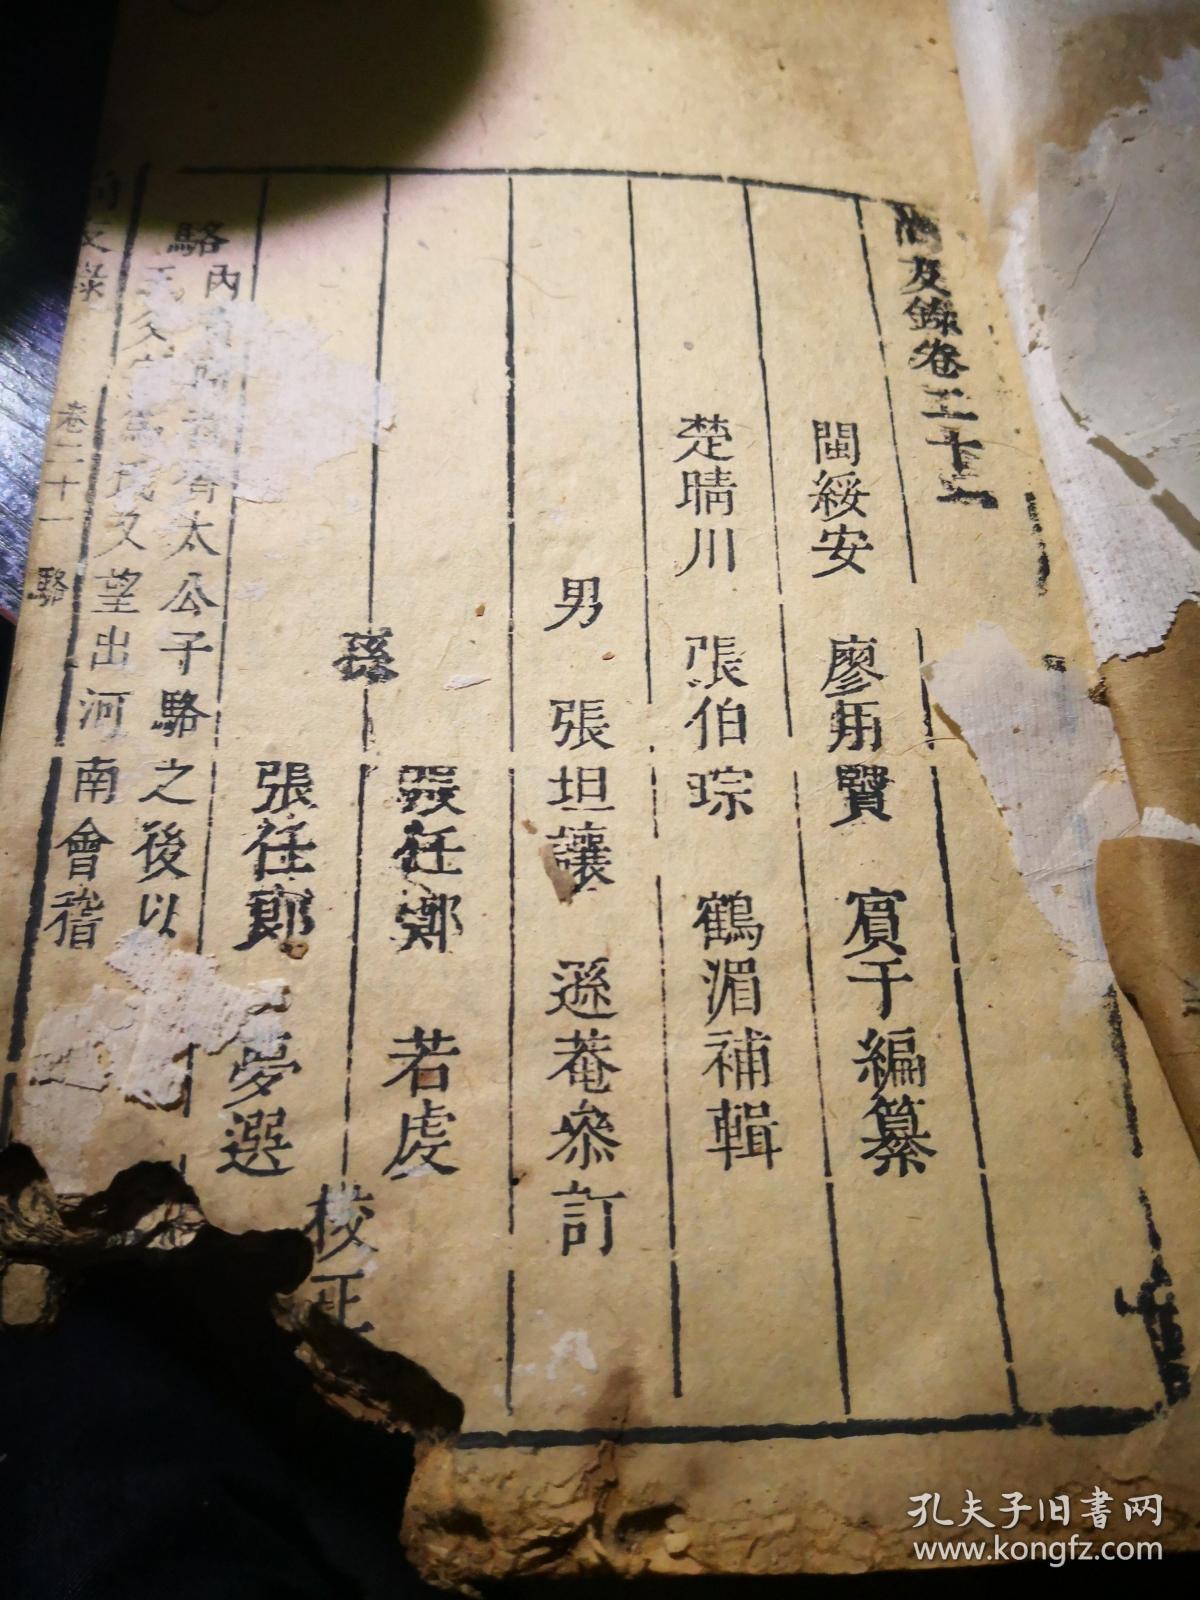 尚友錄卷二十一
閩綏安 廖用賢 賓于編纂
楚晴川 張伯琮 鶴湄補輯
男 張坦讓 遜菴叅訂
孫
張任鄭 若虔
張任郎 夢選
校正
駱
內 齊太公子駱之後以
王父字爲氏又望出河南會稽
尚友錄 卷二十一 駱
孔夫子旧书网
www.kongfz.com